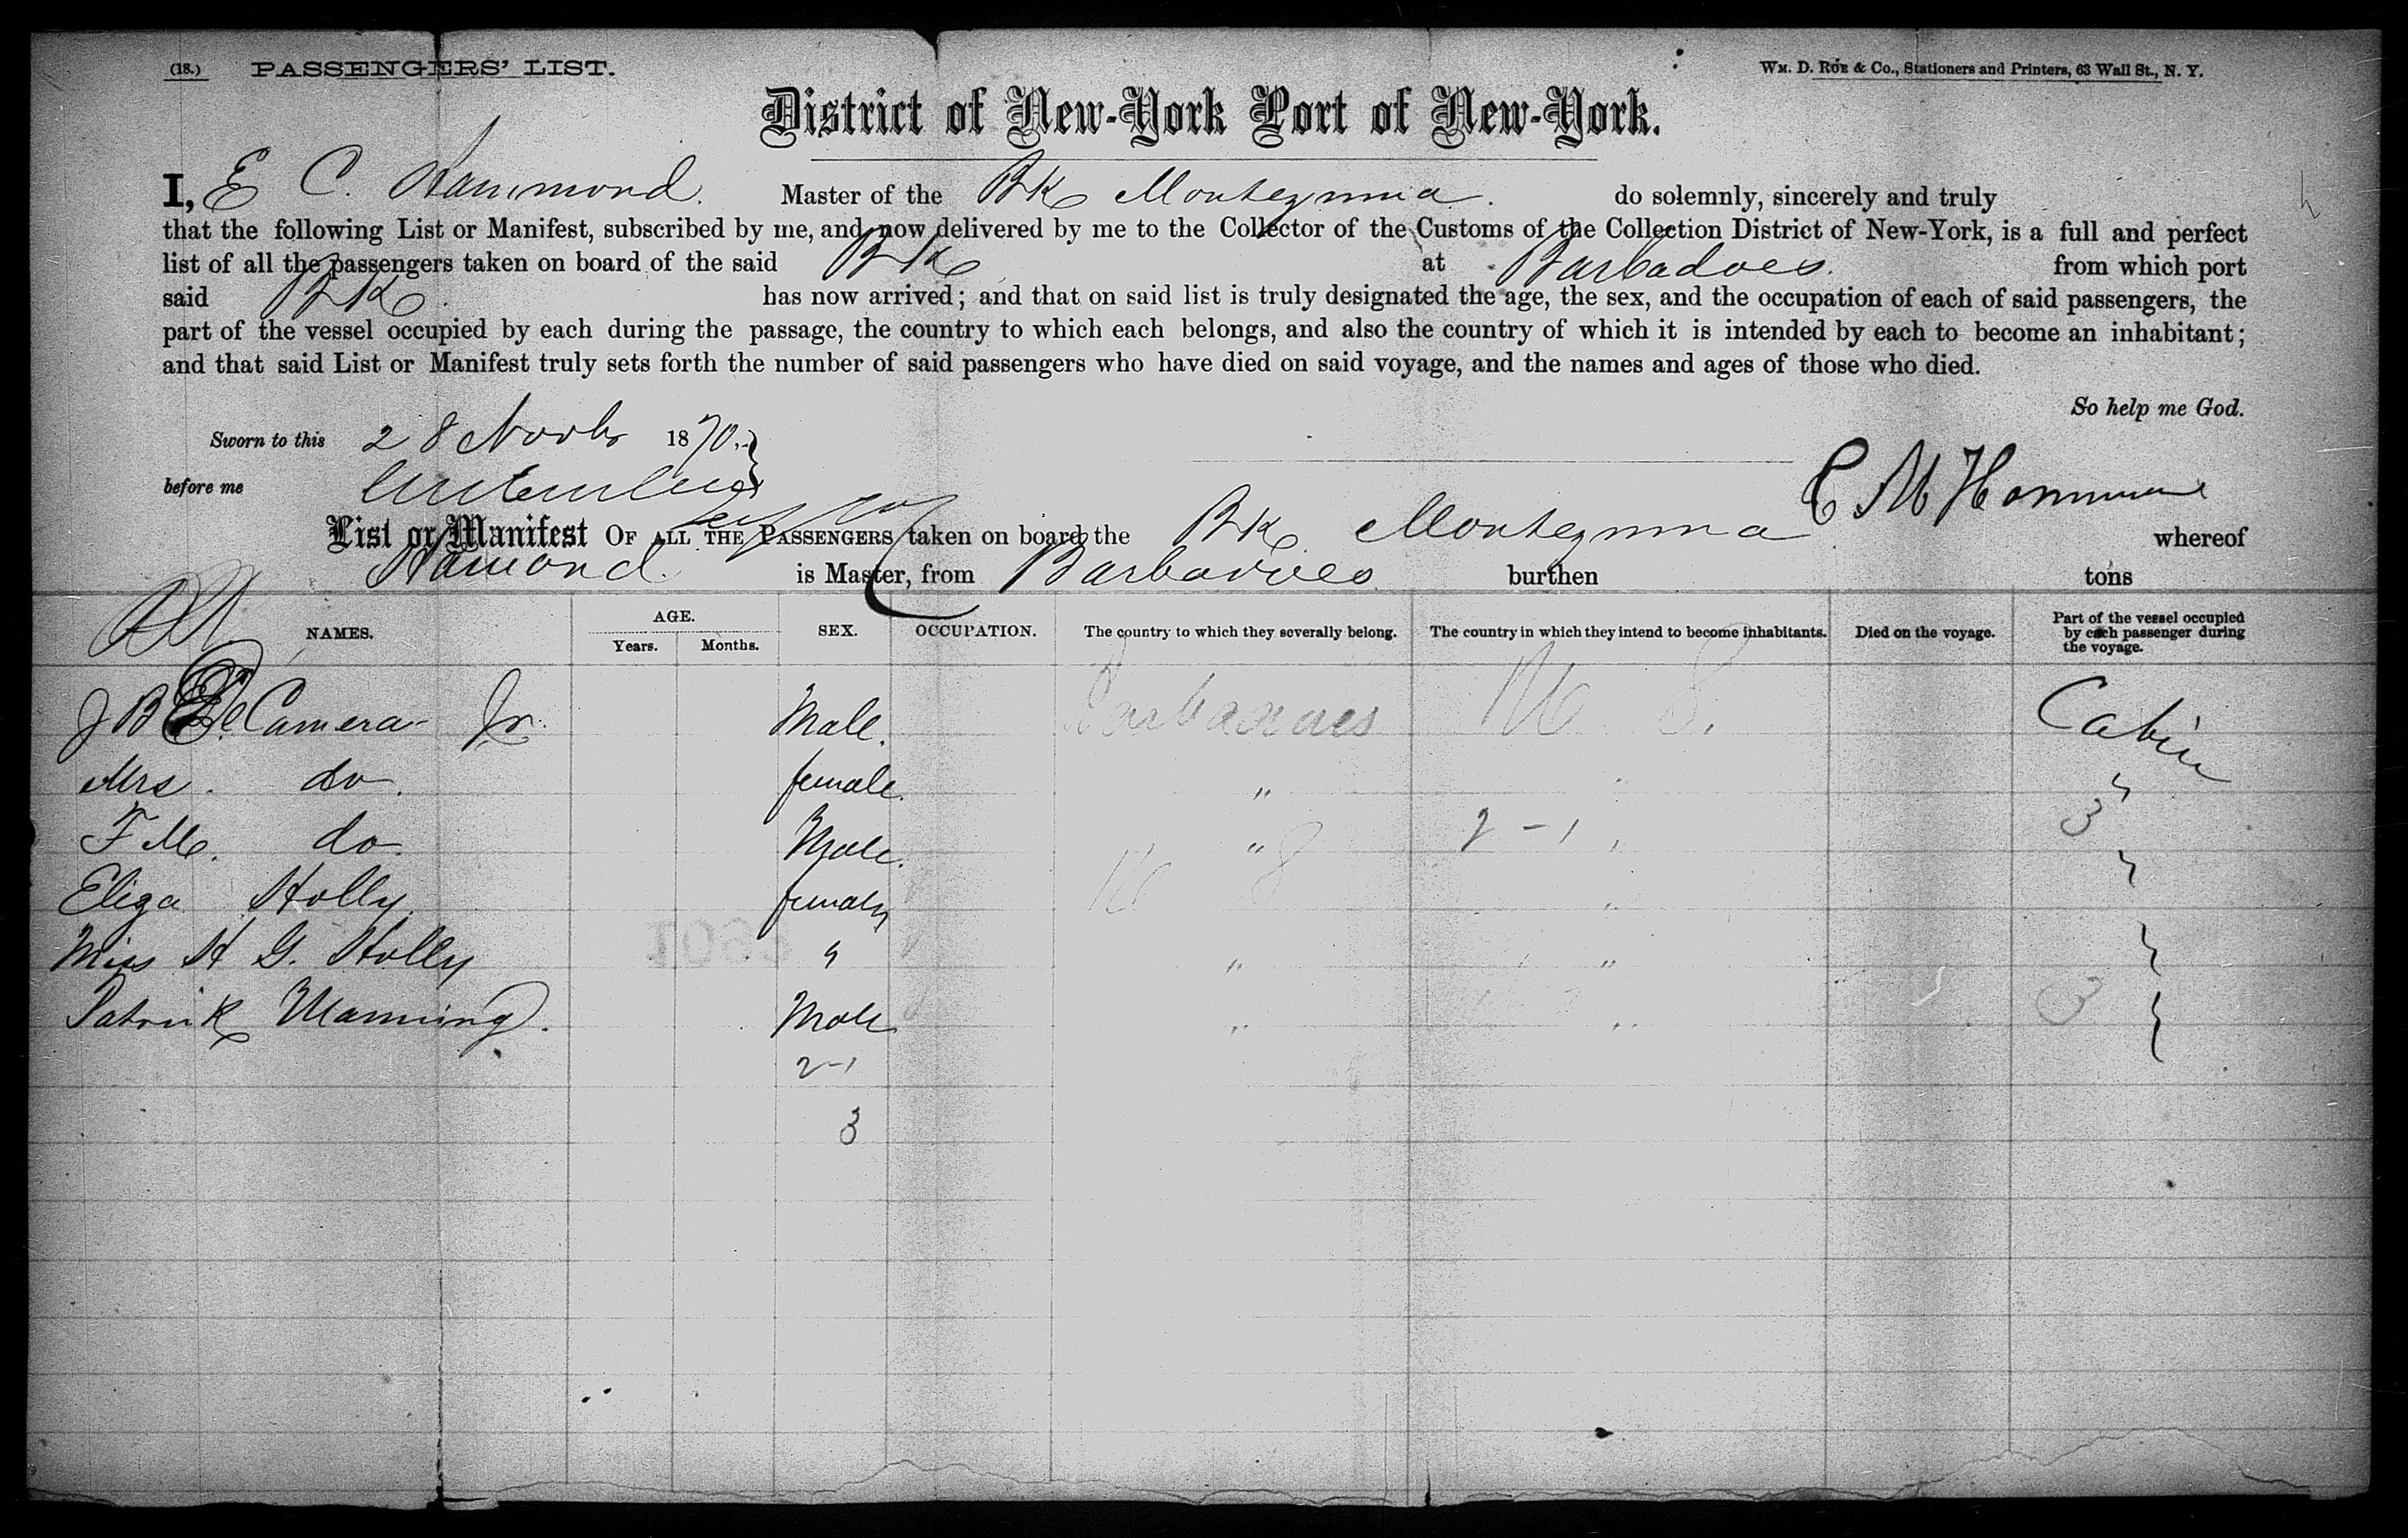 (18.) PASSENGERS' LIST. Wm. D. Roe & Co., Stationers and Printers, 63 Wall St., N. Y.
District of New-York Port of New-York.
I, E C. Hammond. Master of the Bk Montezuma. do solemnly, sincerely and truly
that the following List or Manifest, subscribed by me, and now delivered by me to the Collector of the Customs of the Collection District of New-York, is a full and perfect
list of all the passengers taken on board of the said Bk at Barbadoes. from which port
said Bk. has now arrived; and that on said list is truly designated the age, the sex, and the occupation of each of said passengers, the
part of the vessel occupied by each during the passage, the country to which each belongs, and also the country of which it is intended by each to become an inhabitant;
and that said List or Manifest truly sets forth the number of said passengers who have died on said voyage, and the names and ages of those who died.
So help me God.
Sworn to this 28 Novbr 1870.
before me
List or Manifest OF ALL THE PASSENGERS taken on board the Bk. Montezuma whereof
Hamond. is Master, from Barbadoes burthen tons
NAMES. AGE. Years. Months. SEX. OCCUPATION. The country to which they severally belong. The country in which they intend to become inhabitants. Died on the voyage. Part of the vessel occupied by each passenger during the voyage.
J B De Camera Jr. Male. Barbadoes U S. Cabin
Mrs. do. female. " "
F M. do. Male. " 2-1 " 3
Eliza Holly. female U S "
Miss H G. Holly " " "
Patrick Manning. Male " " 3
2-1
3